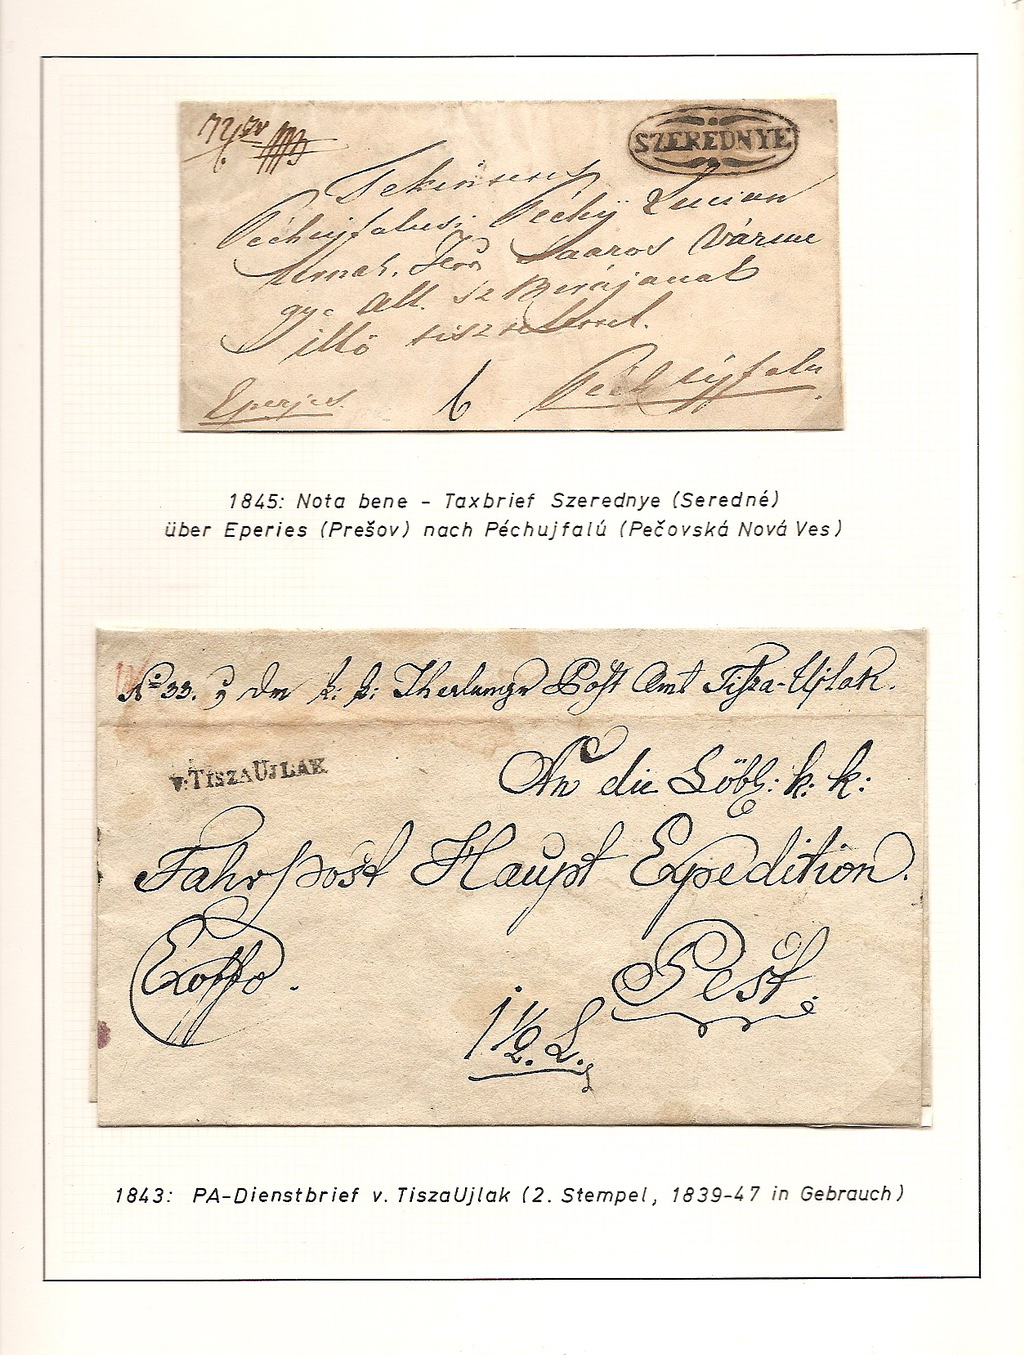 SZEREDNYE
Péchújfalusi Péchy Lucian
Saaros Várme
illő tisztelettel.
Eperjes. 6 Péchújfalu
1845: Nota bene - Taxbrief Szerednye (Seredné)
über Eperies (Prešov) nach Péchujfalú (Pečovská Nová Ves)
No 33. k: k: Post Amt Tisza-Ujlak.
v: TISZA UJLAK
An die Löbl: k: k:
Fahrpost Haupt Expedition.
Exoffo.
Pest.
1 1/2. L.
1843: PA-Dienstbrief v. TiszaUjlak (2. Stempel, 1839-47 in Gebrauch)